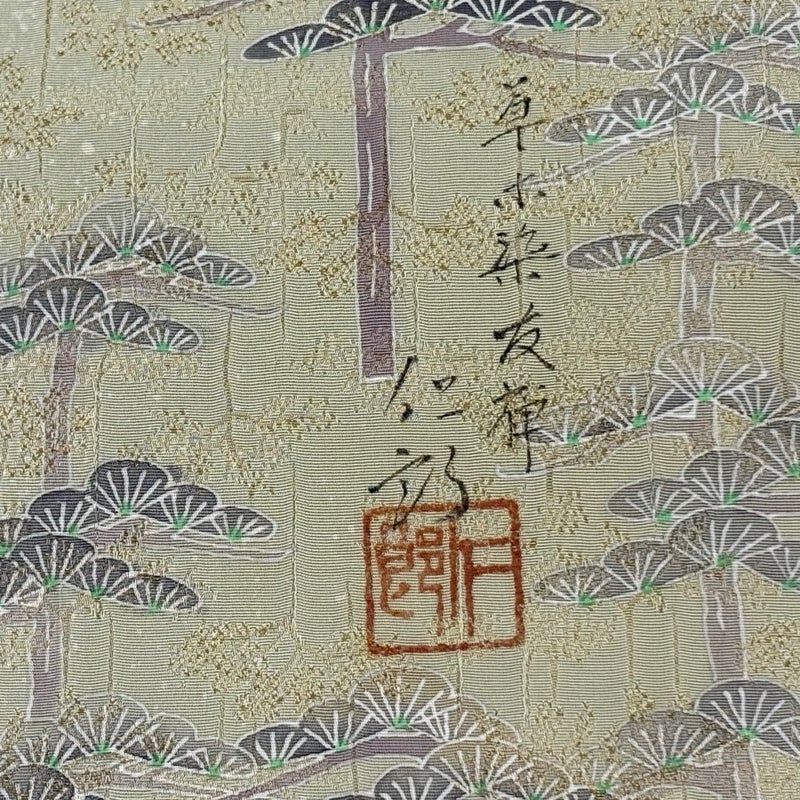 草木染友禅
仁郎
仁郎